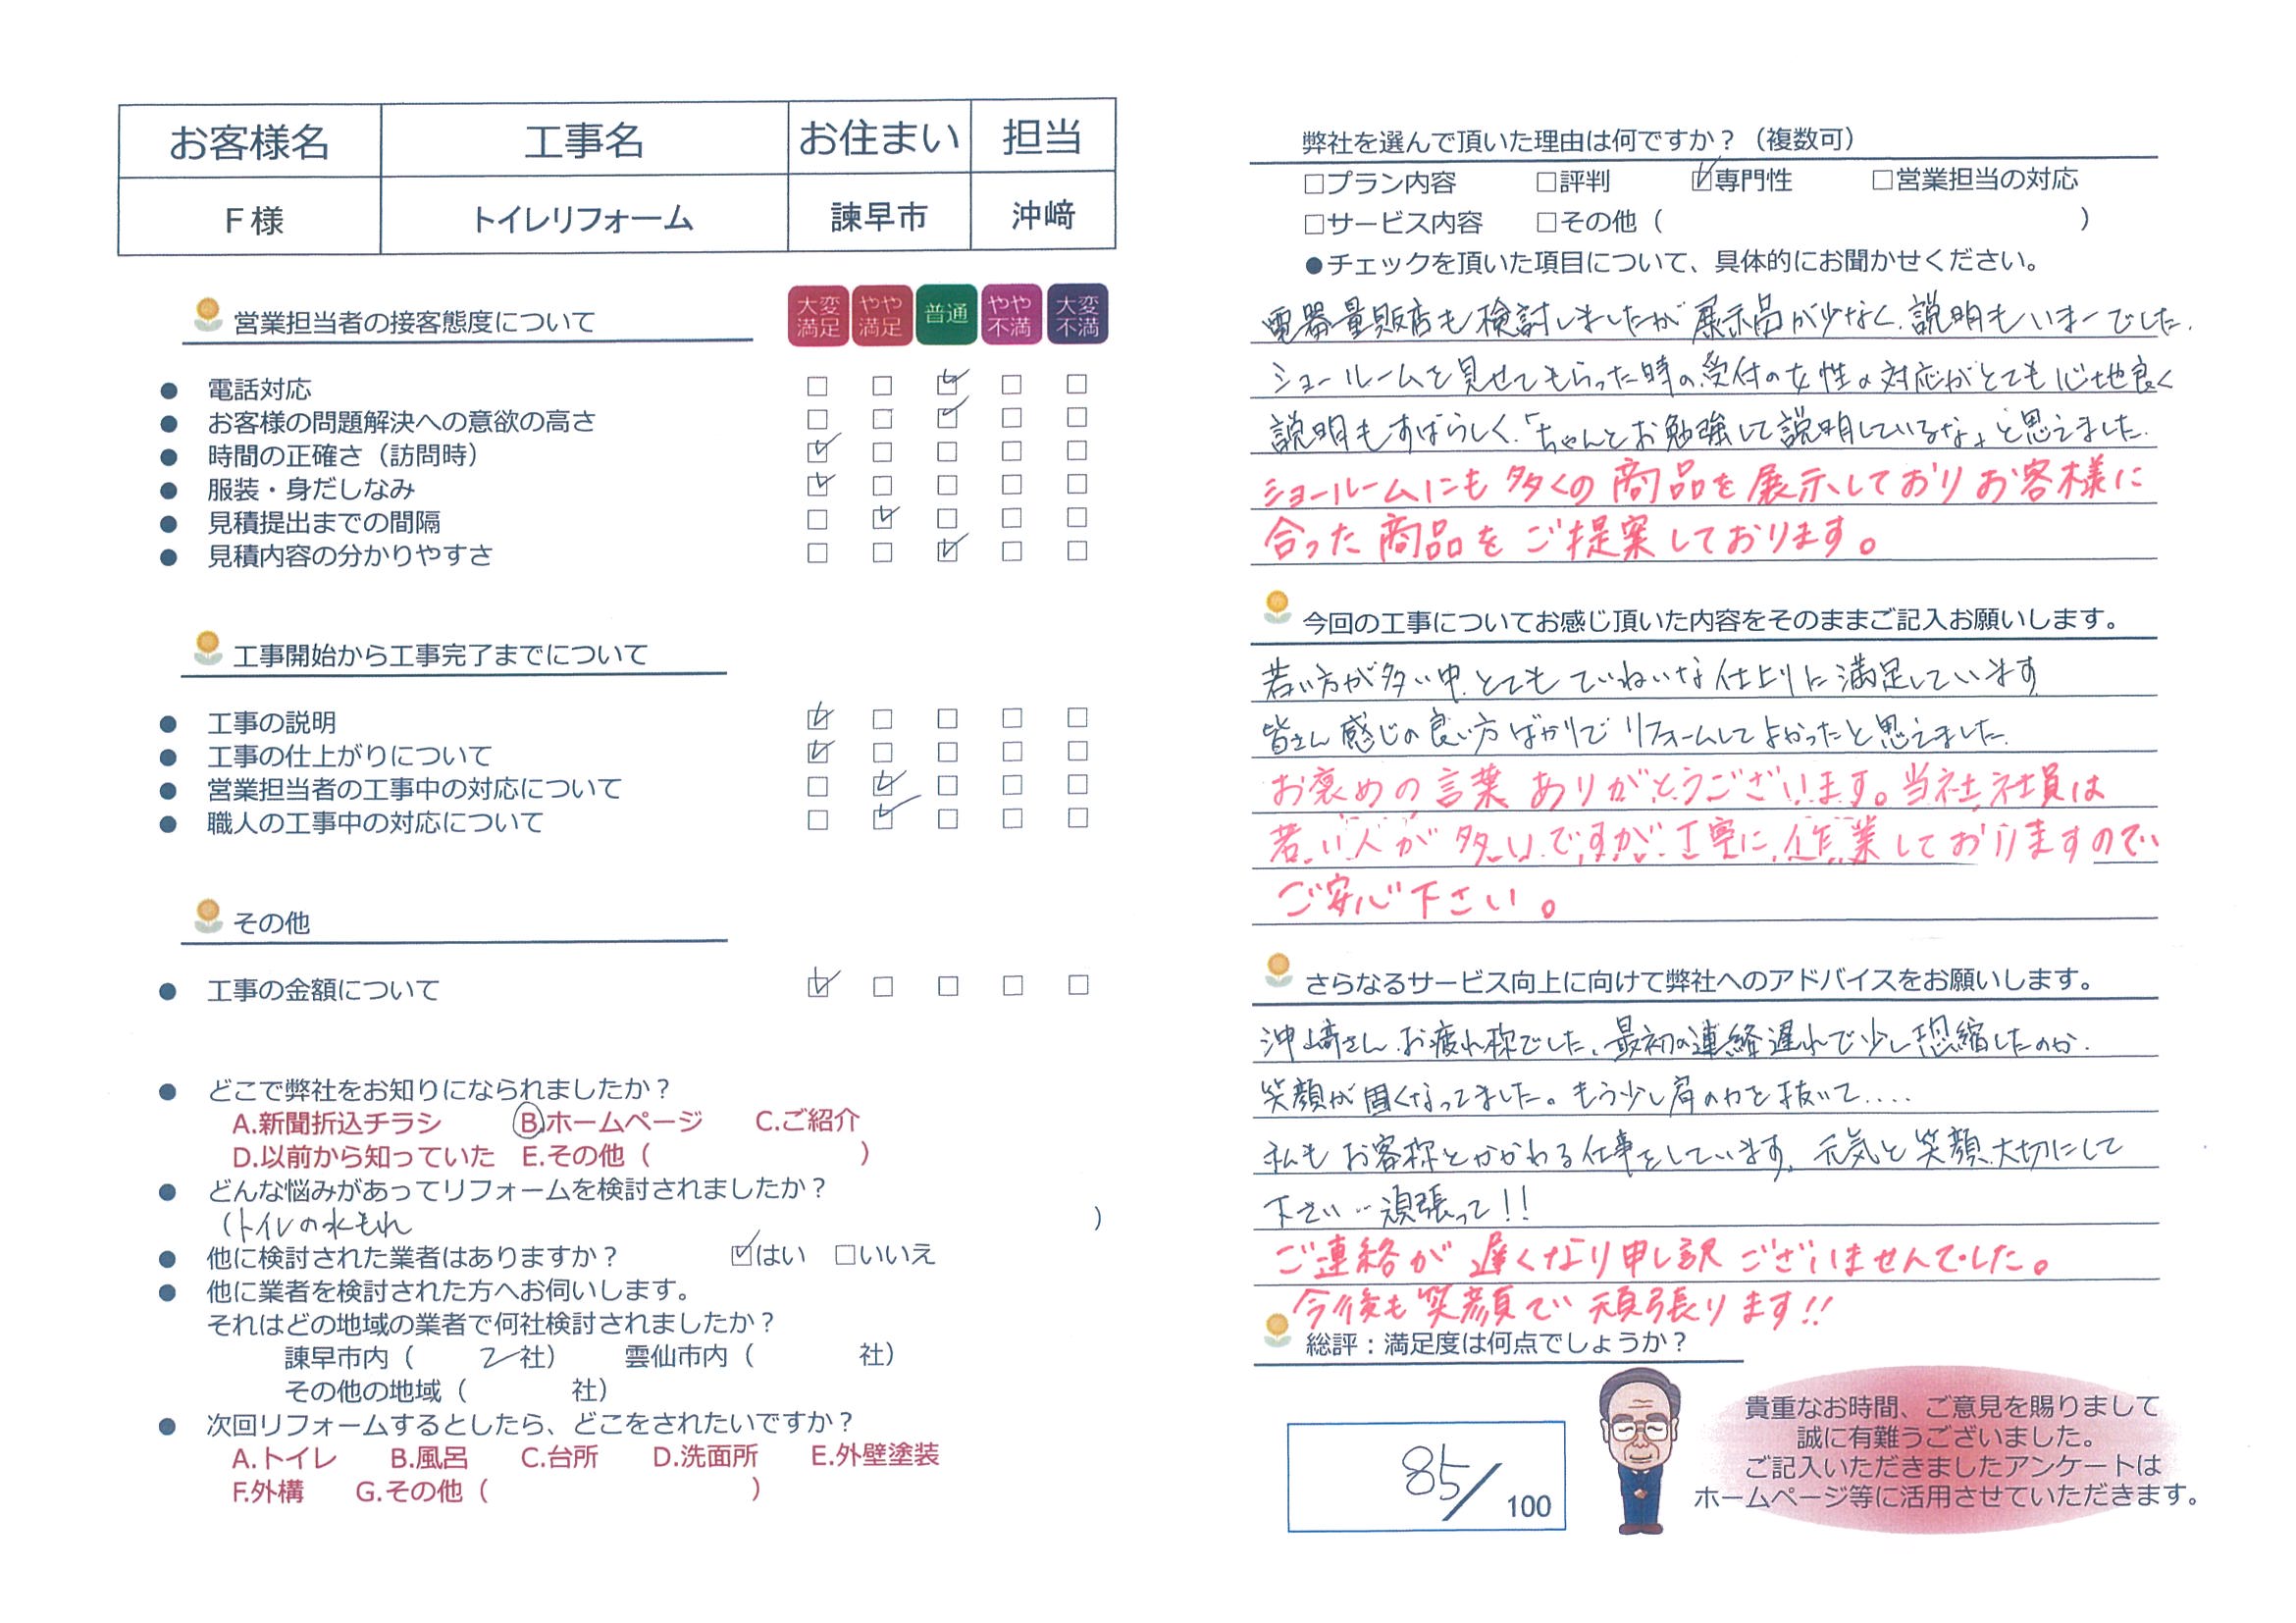 お客様名 工事名 お住まい 担当
F様 トイレリフォーム 諫早市 沖﨑
営業担当者の接客態度について
大変満足 やや満足 普通 やや不満 大変不満
● 電話対応 □ □ ☑ □ □
● お客様の問題解決への意欲の高さ □ □ ☑ □ □
● 時間の正確さ（訪問時） ☑ □ □ □ □
● 服装・身だしなみ ☑ □ □ □ □
● 見積提出までの間隔 □ ☑ □ □ □
● 見積内容の分かりやすさ □ □ ☑ □ □
工事開始から工事完了までについて
● 工事の説明 ☑ □ □ □ □
● 工事の仕上がりについて ☑ □ □ □ □
● 営業担当者の工事中の対応について □ ☑ □ □ □
● 職人の工事中の対応について □ ☑ □ □ □
その他
● 工事の金額について ☑ □ □ □ □
● どこで弊社をお知りになられましたか？
A.新聞折込チラシ B.ホームページ C.ご紹介
D.以前から知っていた E.その他（ ）
● どんな悩みがあってリフォームを検討されましたか？
（トイレの水もれ ）
● 他に検討された業者はありますか？ ☑はい □いいえ
● 他に業者を検討された方へお伺いします。
それはどの地域の業者で何社検討されましたか？
諫早市内（ 2 社） 雲仙市内（ 社）
その他の地域（ 社）
● 次回リフォームするとしたら、どこをされたいですか？
A.トイレ B.風呂 C.台所 D.洗面所 E.外壁塗装
F.外構 G.その他（ ）
弊社を選んで頂いた理由は何ですか？（複数可）
□プラン内容 □評判 ☑専門性 □営業担当の対応
□サービス内容 □その他（ ）
●チェックを頂いた項目について、具体的にお聞かせください。
電器量販店も検討しましたが展示品が少なく、説明もいまーでした。
ショールームを見せてもらった時の受付の女性の対応がとても心地良く
説明もすばらしく、「ちゃんとお勉強して説明しているな」と思えました。
ショールームにも多くの商品を展示しておりお客様に
合った商品をご提案しております。
今回の工事についてお感じ頂いた内容をそのままご記入お願いします。
若い方が多い中、とてもていねいな仕上りに満足しています
皆さん感じの良い方ばかりでリフォームしてよかったと思えました。
お褒めの言葉ありがとうございます。当社社員は
若い人が多いですが丁寧に作業しておりますので
ご安心下さい。
さらなるサービス向上に向けて弊社へのアドバイスをお願いします。
沖﨑さん、お疲れ様でした、最初の連絡遅れで少し恐縮したのか、
笑顔が固くなってました。もう少し肩の力を抜いて....
私もお客様とかかわる仕事をしています、元気と笑顔、大切にして
下さい…頑張って!!
ご連絡が遅くなり申し訳ございませんでした。
今後も笑顔で頑張ります!!
総評：満足度は何点でしょうか？
85/100
貴重なお時間、ご意見を賜りまして
誠に有難うございました。
ご記入いただきましたアンケートは
ホームページ等に活用させていただきます。